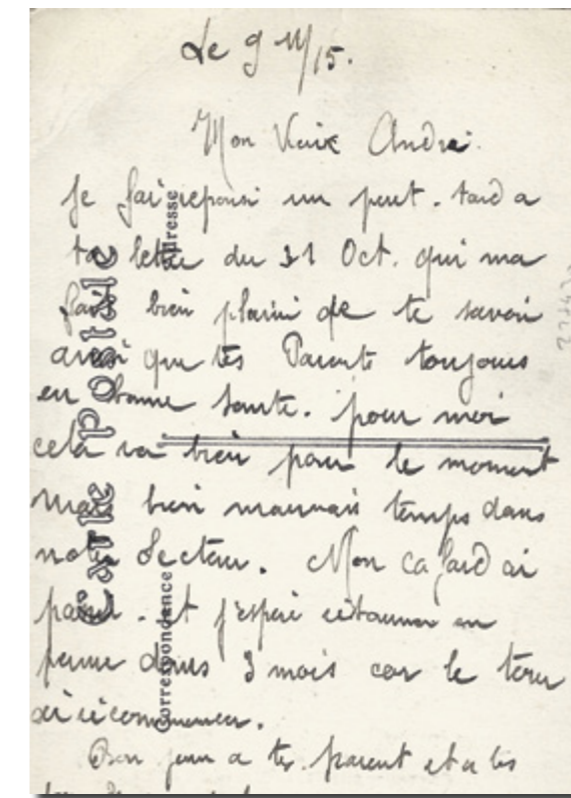 Le 9 11/15.
Mon Vieux André.
Je fai reponse un peut. tard a
ta lettre du 31 Oct. qui ma
fait bien plaisir de te savoir
ainsi que tes Parents toujours
en bonne sante. pour moi
cela va bien pour le moment
mais bien mauvais temps dans
notre Secteur. Mon cafard ai
passé. et j'espère retourner en
perme dans 3 mois car le tour
ai recommencer.
Bon jour a tes parent et a tes
Carte postale
Correspondance
Adresse